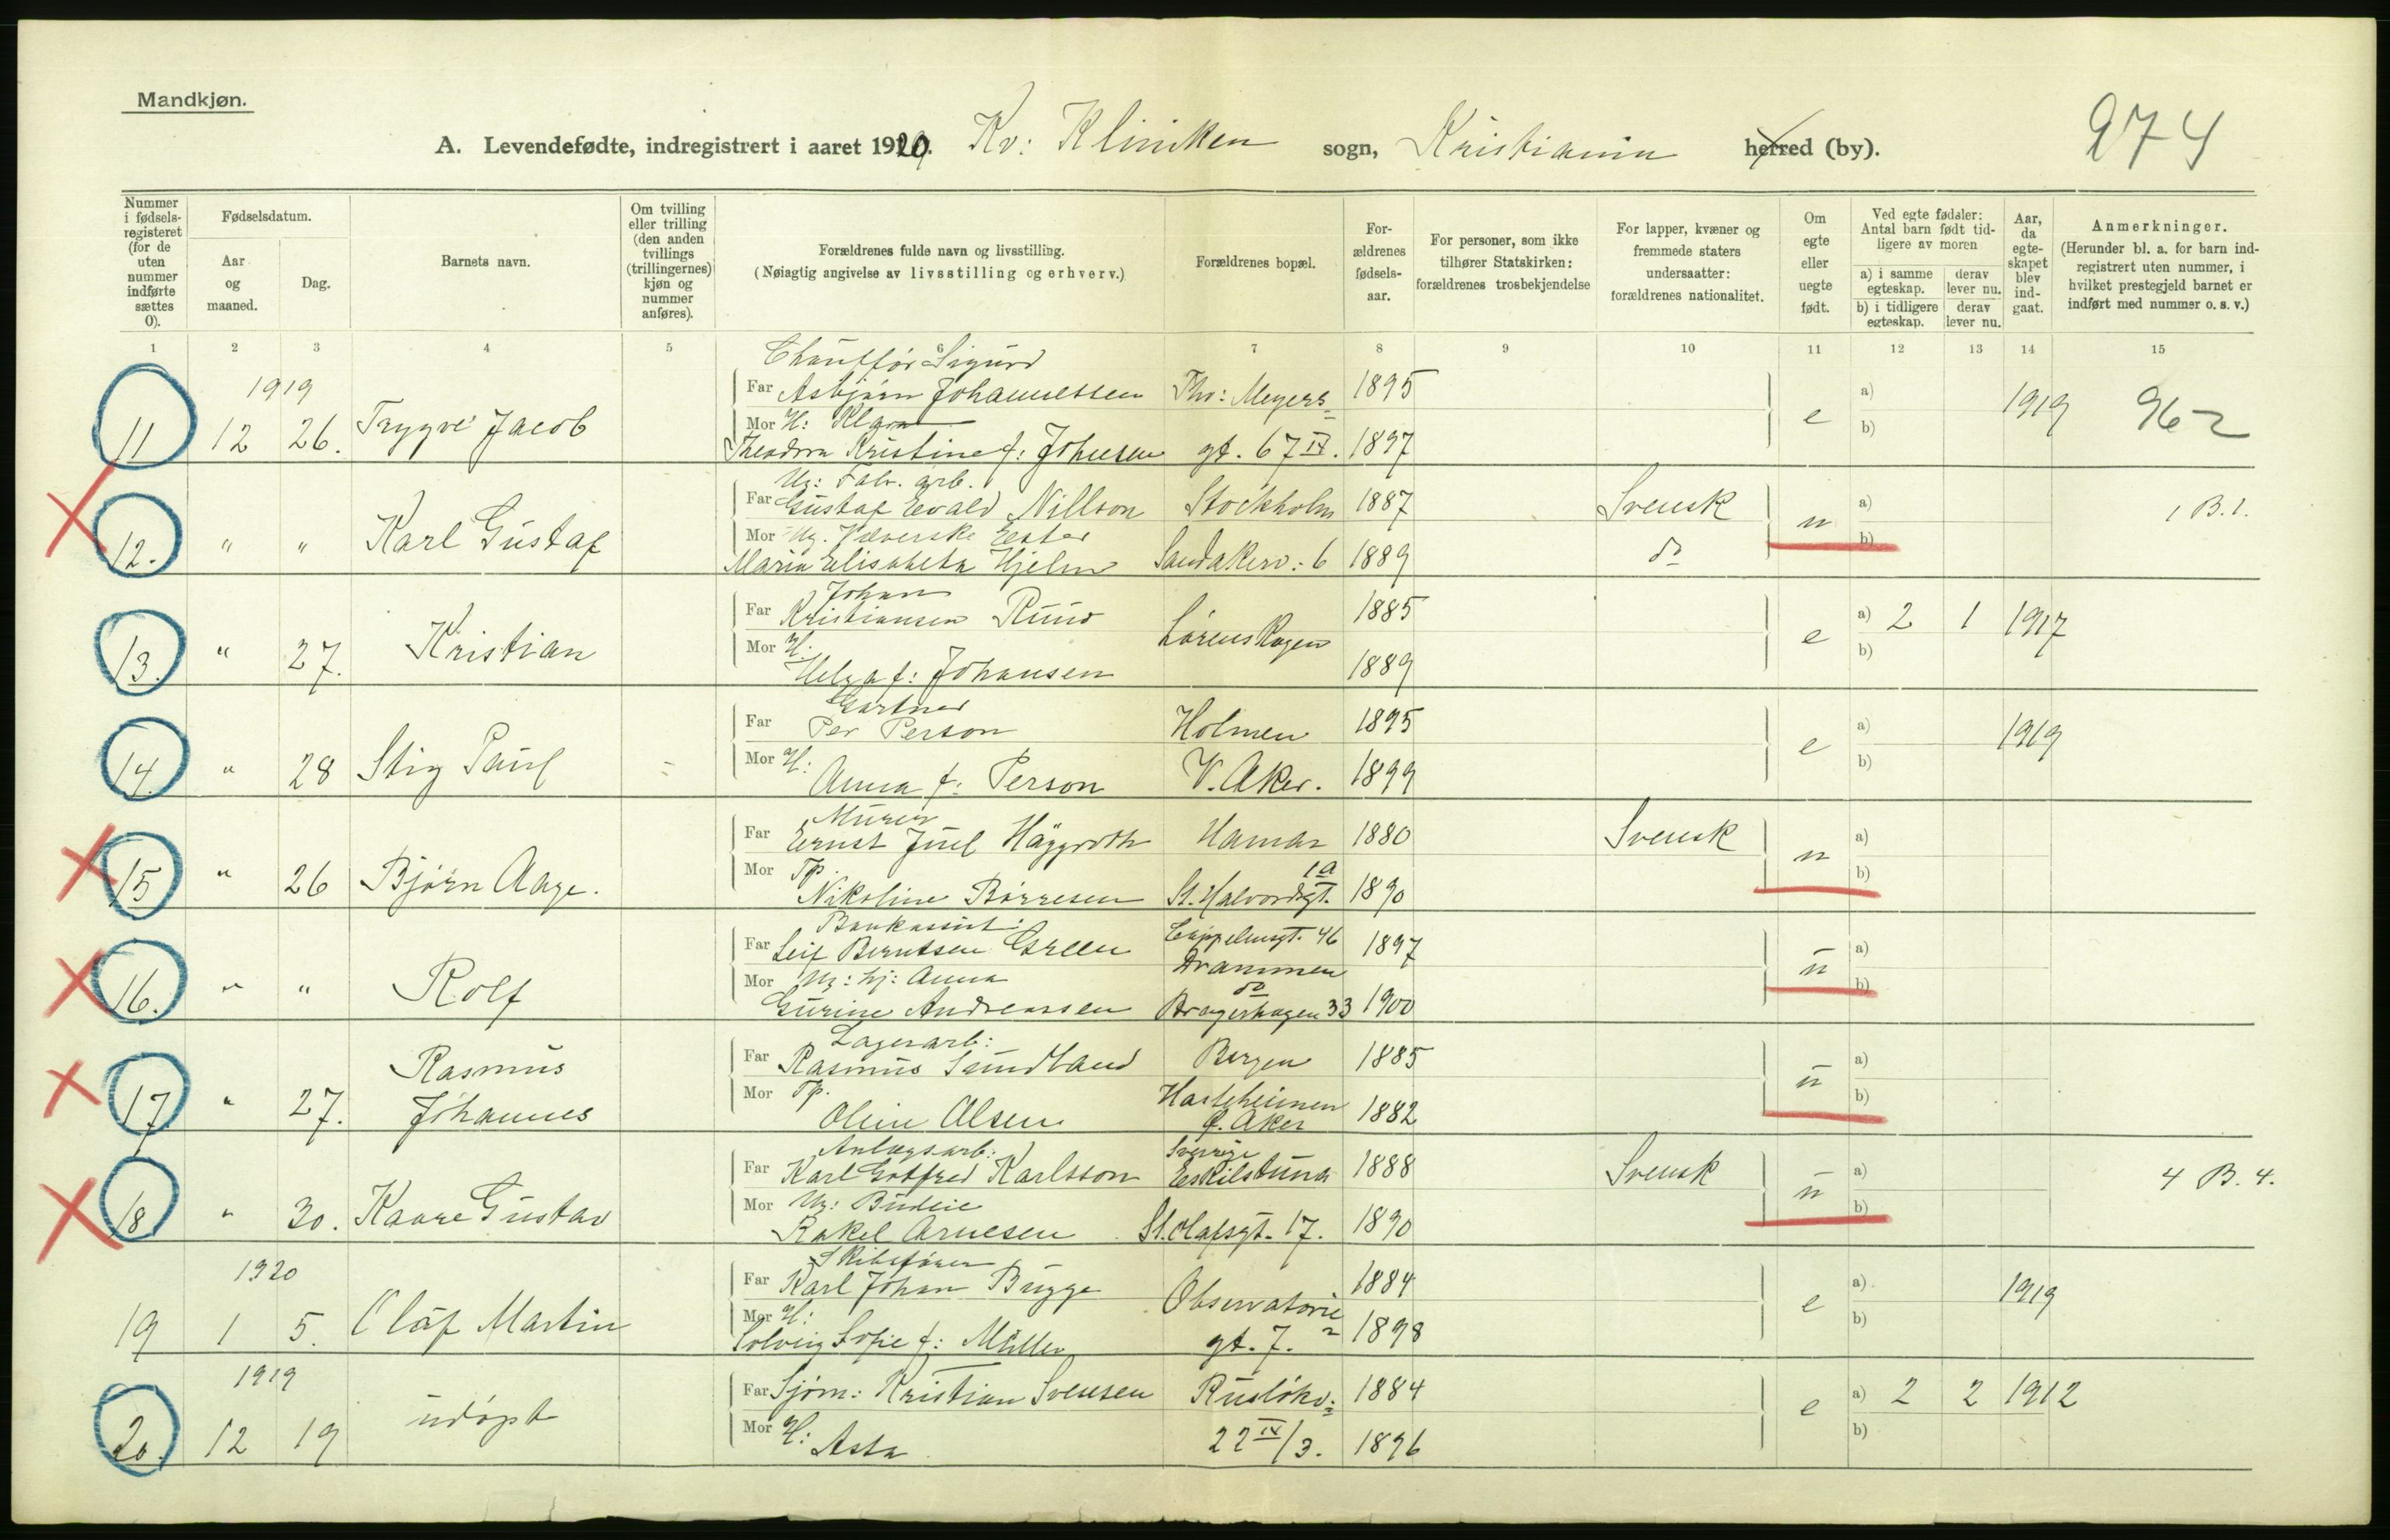 Mandkjøn.
A. Levendefødte, indregistrert i aaret 1920. Kv: Kliniken sogn, Kristiania herred (by). 274
Nummer i fødsels-registeret (for de uten nummer indførte sættes 0).
Fødselsdatum.
Aar og maaned.
Dag.
Barnets navn.
Om tvilling eller trilling (den anden tvillings (trillingernes) kjøn og nummer anføres).
Forældrenes fulde navn og livsstilling.
(Nøiagtig angivelse av livsstilling og erhverv.)
Forældrenes bopæl.
For-ældrenes fødsels-aar.
For personer, som ikke tilhører Statskirken: forældrenes trosbekjendelse
For lapper, kvæner og fremmede staters undersaatter: forældrenes nationalitet.
Om egte eller uegte født.
Ved egte fødsler: Antal barn født tid-ligere av moren
a) i samme egteskap.
derav lever nu.
b) i tidligere egteskap.
derav lever nu.
Aar, da egte-skapet blev ind-gaat.
Anmerkninger.
(Herunder bl. a. for barn ind-registrert uten nummer, i hvilket prestegjeld barnet er indført med nummer o. s. v.)
1 2 3 4 5 6 7 8 9 10 11 12 13 14 15
Chauffør Sigurd
1919
Far Asbjørn Johannessen Thv: Meyers 1895 a)
11 12 26. Trygve Jacob e 1919 962
Mor H: Klara b)
Theodora Kristine f: Johnsen gt. 67 IV. 1897
Ug: Fabr. arb.
Far Gustaf Evald Nillson Stockholm 1887 Svensk a) 1 B. 1.
12. " " Karl Gustaf u
Mor Ug. Væverske Ester b)
Maria Elisabeta Hjelm Sandakerv: 6 1889 do
Johan
Far Kristiansen Ruud 1885 a) 2 1 1917
13. " 27. Kristian Lørenskogen e
Mor H: b)
Helga f: Johansen 1889
Gartner
Far Per Person Holmen 1895 a) 1919
14. " 28 Stig Paul e
Mor H: b)
Anna f: Person V. Aker. 1899
Murer
Far Ernst Juel Häggroth Hamar 1880 Svensk a)
15 " 26 Bjørn Aage. u
Mor Tp. 1 a b)
Nikoline Børresen St. Halvordsgt. 1890
Bankassist:
Far Leif Berntsen Green Cappelensgt. 46 1897 a)
16. " " Rolf Drammen u
Mor Ug: hj: Anna do b)
Gurine Andreassen Bragerhagen 33 1900
Lagerarb:
Far Rasmus Sundland Bergen 1885 a)
17 " 27. Rasmus Johannes u
Mor Tp. b)
Oline Olsen Ø. Aker 1882
Anlægsarb: Sverige
Far Karl Gotfred Karlsson Eskilstuna 1888 Svensk a) 4 B. 4.
18 " 30. Kaare Gustav u
Mor Ug: Budeie b)
Rakel Arnesen St. Olafsgt. 17. 1890
Skibsfører
1920
Far Karl Johan Bugge Observatorie 1884 a) 1919
19 1 5. Olaf Martin e
Mor H: b)
Solveig Sofie f: Müller gt. 7. 1898
1919
Far Sjøm: Kristian Svensen Rusløkv: 1884 a) 2 2 1912
20. 12 19 udøpt e
Mor H: Asta 22 IV/3. 1896 b)